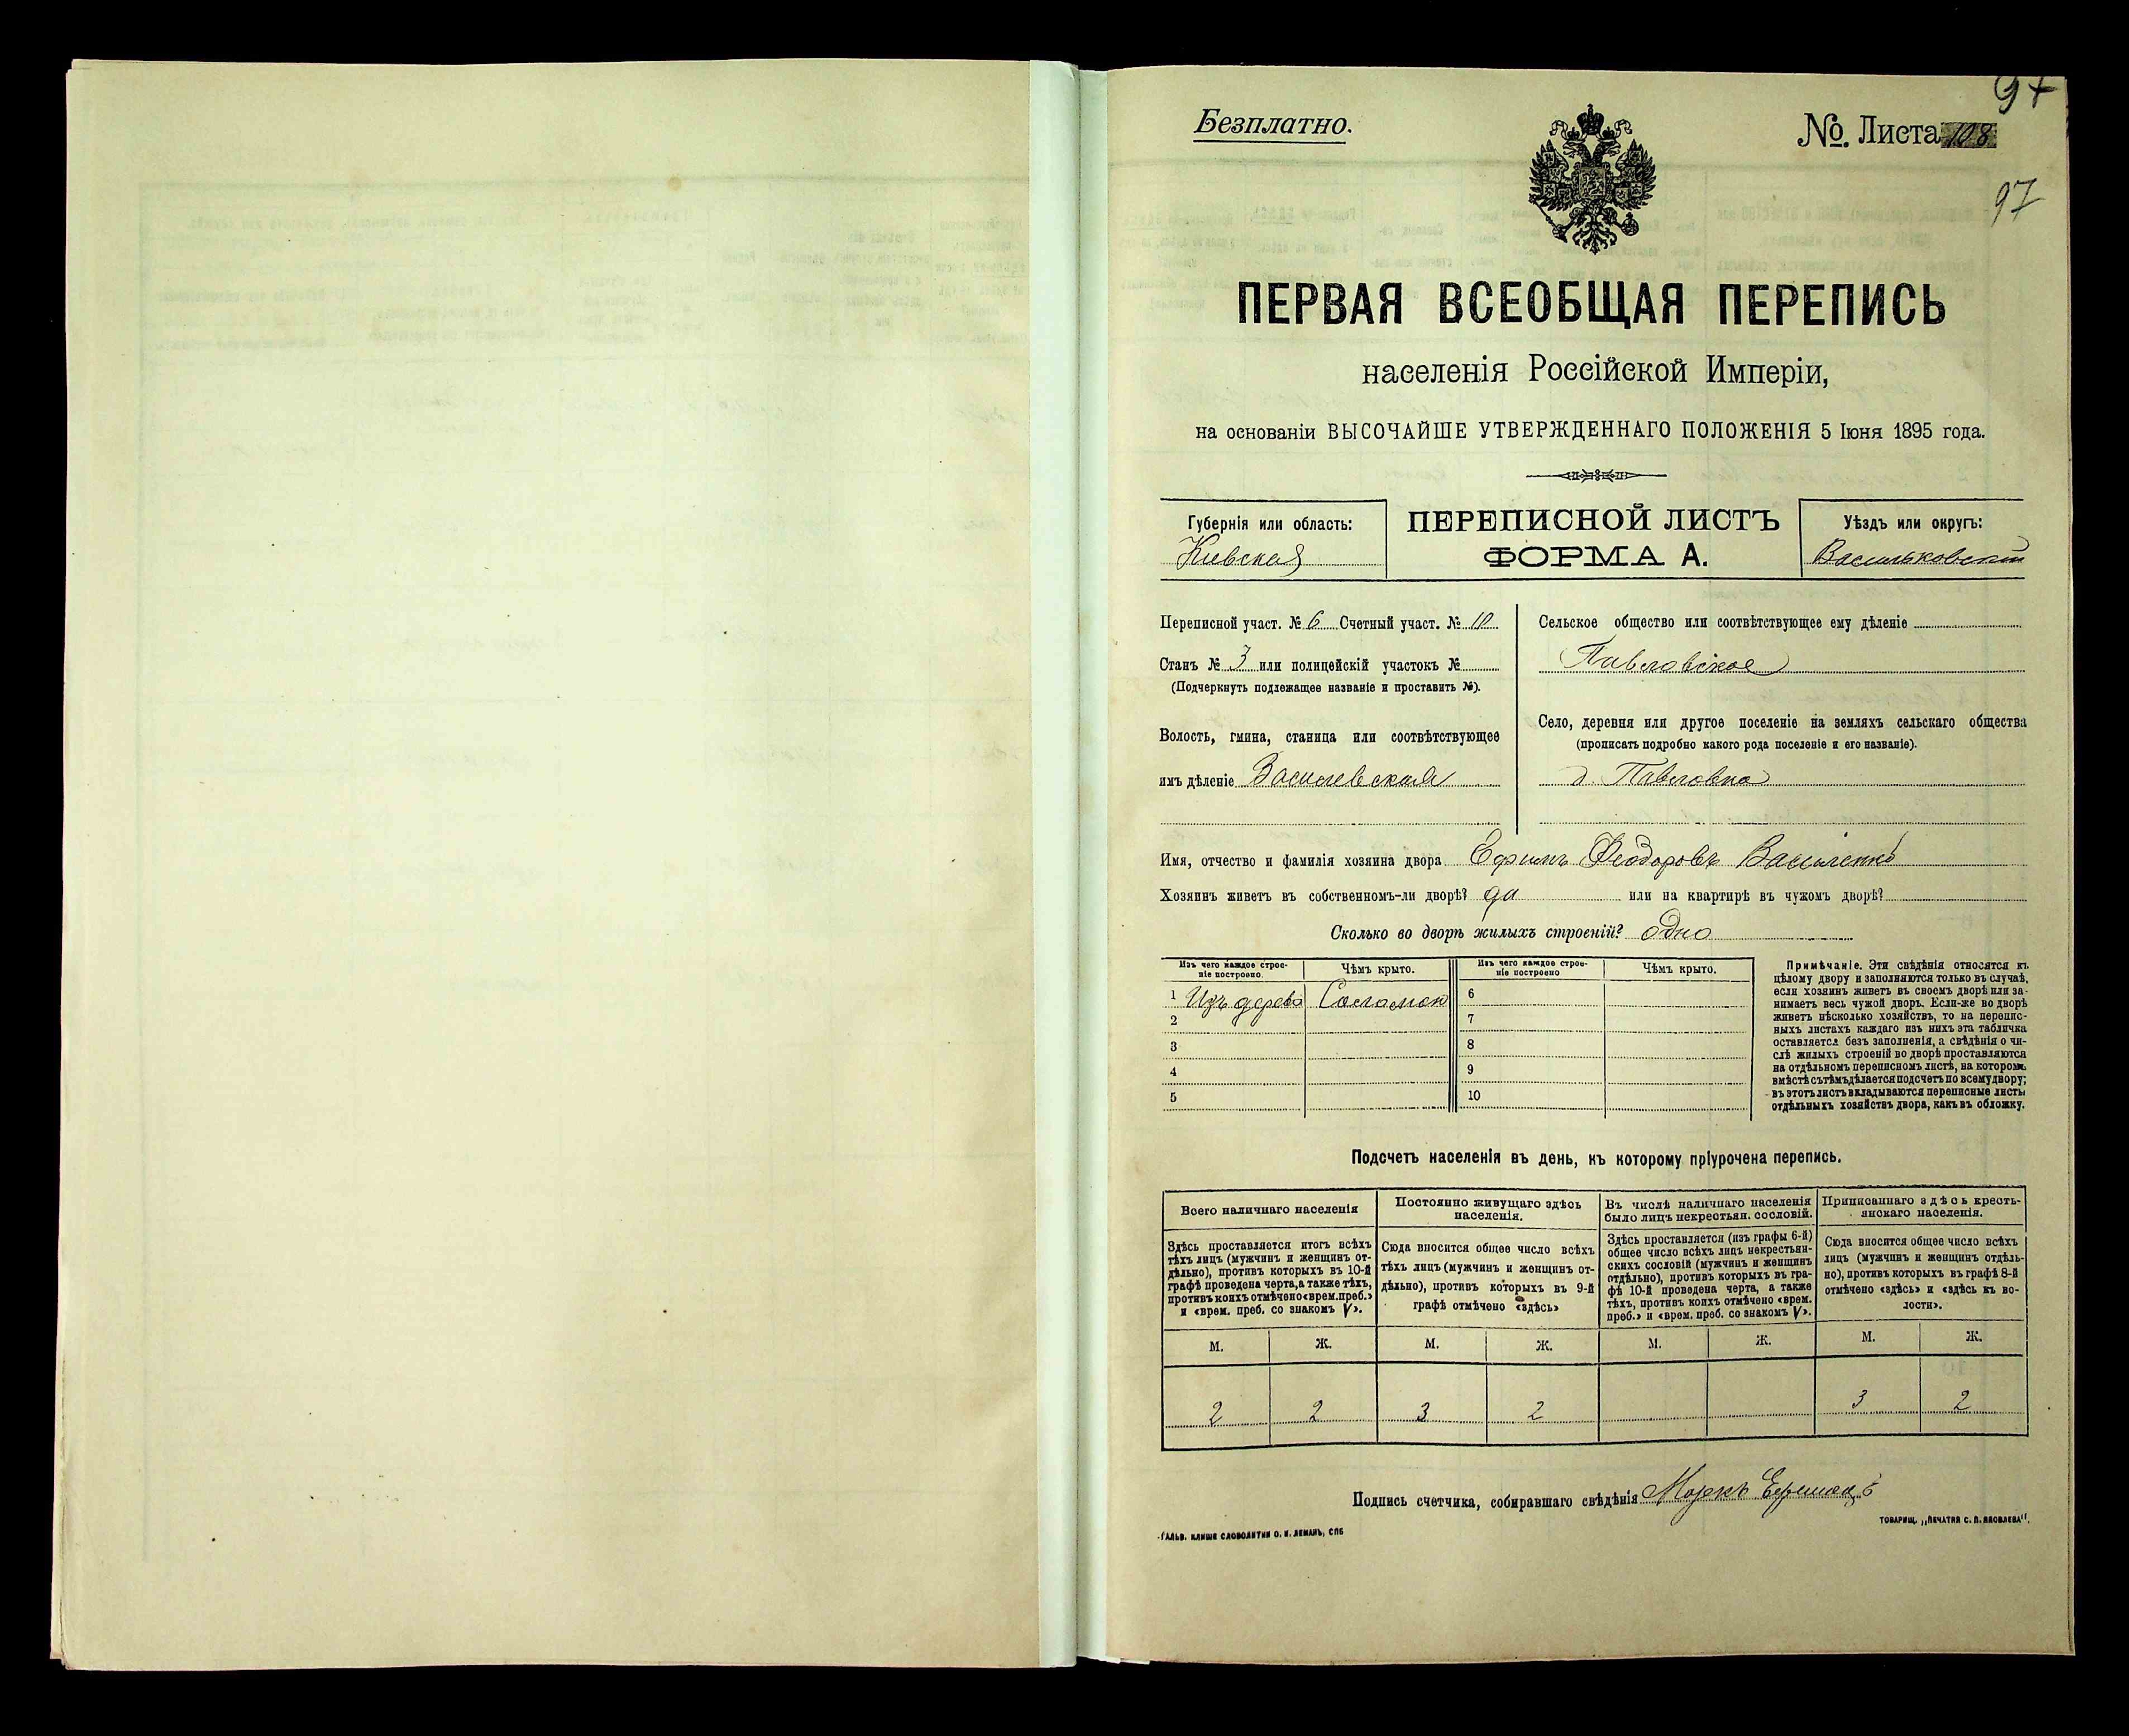 97
Безплатно.
№. Листа 108
97
ПЕРВАЯ ВСЕОБЩАЯ ПЕРЕПИСЬ
населенія Россійской Имперіи,
на основаніи ВЫСОЧАЙШЕ УТВЕРЖДЕННАГО ПОЛОЖЕНІЯ 5 Іюня 1895 года.
Губернія или область:
Кіевская
ПЕРЕПИСНОЙ ЛИСТЪ
ФОРМА А.
Уѣздъ или округъ:
Васильковскій
Переписной участ. № 6 Счетный участ. № 10
Станъ № 3 или полицейскій участокъ №
(Подчеркнуть подлежащее названіе и проставить №).
Волость, гмина, станица или соотвѣтствующее
имъ дѣленіе Васильевская
Сельское общество или соотвѣтствующее ему дѣленіе
Павловское
Село, деревня или другое поселеніе на земляхъ сельскаго общества
(прописать подробно какого рода поселеніе и его названіе).
д. Павловка
Имя, отчество и фамилія хозяина двора Ефимъ Феодоровъ Василенко
Хозяинъ живетъ въ собственномъ-ли дворѣ? да или на квартирѣ въ чужомъ дворѣ?
Сколько во дворѣ жилыхъ строеній? одно
Изъ чего каждое строе-
ніе построено.
Чѣмъ крыто.
Изъ чего каждое строе-
ніе построено
Чѣмъ крыто.
1 Изъ дерева Соломою 6
2 7
3 8
4 9
5 10
Примѣчаніе. Эти свѣдѣнія относятся къ
цѣлому двору и заполняются только въ случаѣ,
если хозяинъ живетъ въ своемъ дворѣ или за-
нимаетъ весь чужой дворъ. Если-же во дворѣ
живетъ нѣсколько хозяйствъ, то на перепис-
ныхъ листахъ каждаго изъ нихъ эта табличка
оставляется безъ заполненія, а свѣдѣнія о чи-
слѣ жилыхъ строеній во дворѣ проставляются
на отдѣльномъ переписномъ листѣ, на которомъ
вмѣстѣ съ тѣмъ дѣлается подсчетъ по всему двору;
въ этотъ листъ вкладываются переписные листы
отдѣльныхъ хозяйствъ двора, какъ въ обложку.
Подсчетъ населенія въ день, къ которому пріурочена перепись.
Всего наличнаго населенія
Здѣсь проставляется итогъ всѣхъ
тѣхъ лицъ (мужчинъ и женщинъ от-
дѣльно), противъ которыхъ въ 10-й
графѣ проведена черта, а также тѣхъ,
противъ коихъ отмѣчено «врем. преб.»
и «врем. преб. со знакомъ V».
Постоянно живущаго здѣсь
населенія.
Сюда вносится общее число всѣхъ
тѣхъ лицъ (мужчинъ и женщинъ от-
дѣльно), противъ которыхъ въ 9-й
графѣ отмѣчено «здѣсь»
Въ числѣ наличнаго населенія
было лицъ некрестьян. сословій.
Здѣсь проставляется (изъ графы 6-й)
общее число всѣхъ лицъ некрестьян-
скихъ сословій (мужчинъ и женщинъ
отдѣльно), противъ которыхъ въ гра-
фѣ 10-й проведена черта, а также
тѣхъ, противъ коихъ отмѣчено «врем.
преб.» и «врем. преб. со знакомъ V».
Приписаннаго здѣсь кресть-
янскаго населенія.
Сюда вносится общее число всѣхъ
лицъ (мужчинъ и женщинъ отдѣль-
но), противъ которыхъ въ графѣ 8-й
отмѣчено «здѣсь» и «здѣсь къ во-
лости».
М. Ж. М. Ж. М. Ж. М. Ж.
2 2 3 2 3 2
Подпись счетчика, собиравшаго свѣдѣнія Маркъ
ГАЛЬВ. КЛИШЕ СЛОВОЛИТНИ О. И. ЛЕМАНЪ, СПБ
ТОВАРИЩ. „ПЕЧАТНЯ С. П. ЯКОВЛЕВА".